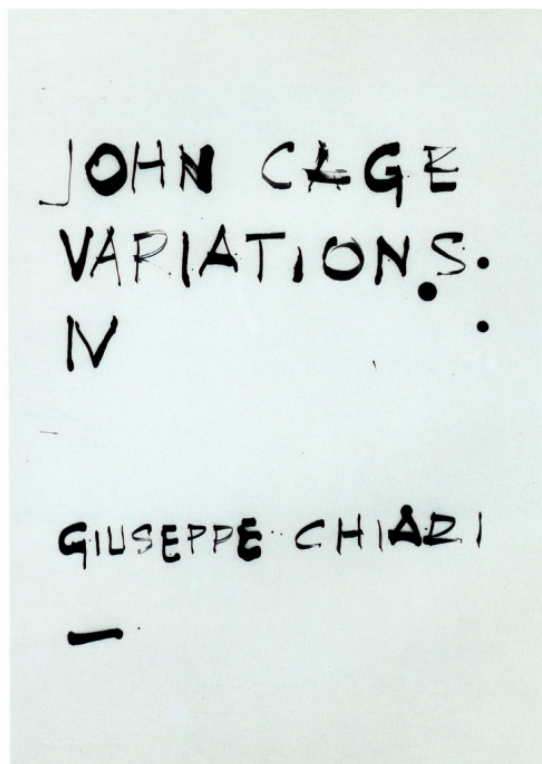 JOHN CAGE
VARIATIONS
IV
GIUSEPPE CHIARI